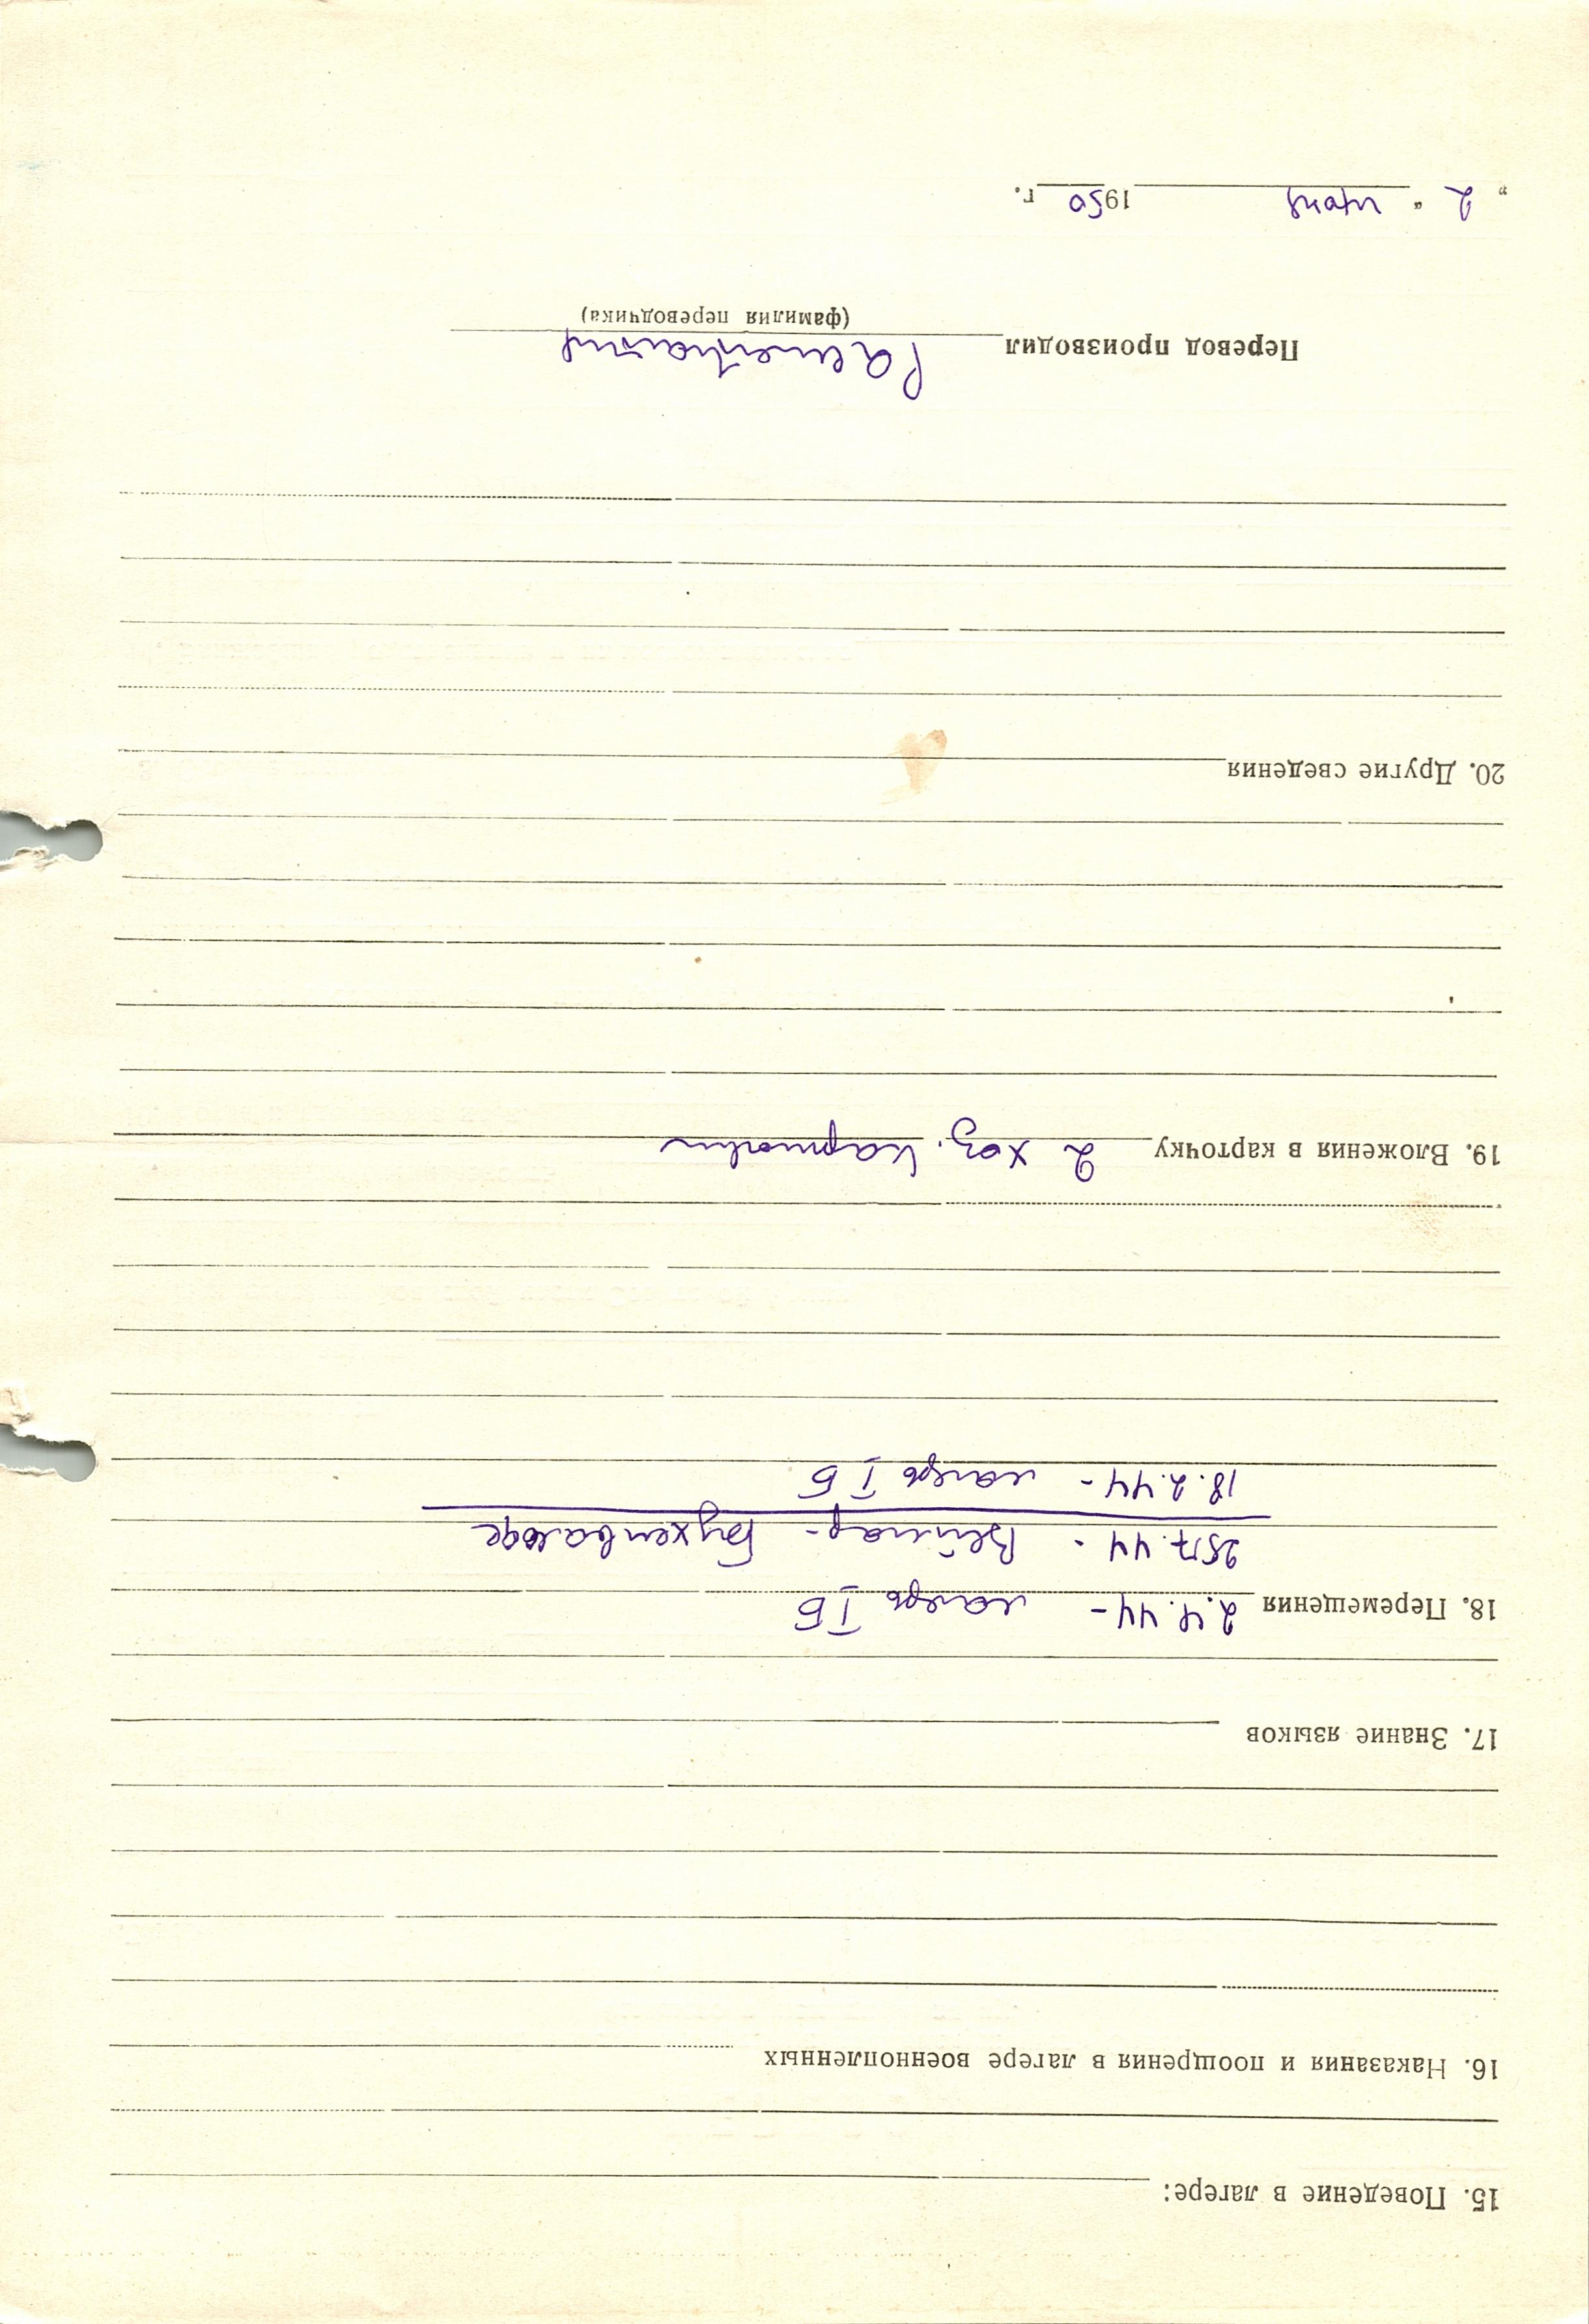 15. Поведение в лагере:
16. Наказания и поощрения в лагере военнопленных
17. Знание языков
18. Перемещения 2.4.44 - лагерь I Б
25.7.44 - Веймар - Бухенвальде
18.2.44 - лагерь I Б
19. Вложения в карточку 2 хоз. карточки
20. Другие сведения
Перевод производил
(фамилия переводчика)
„ 2 “ июня 1950 г.